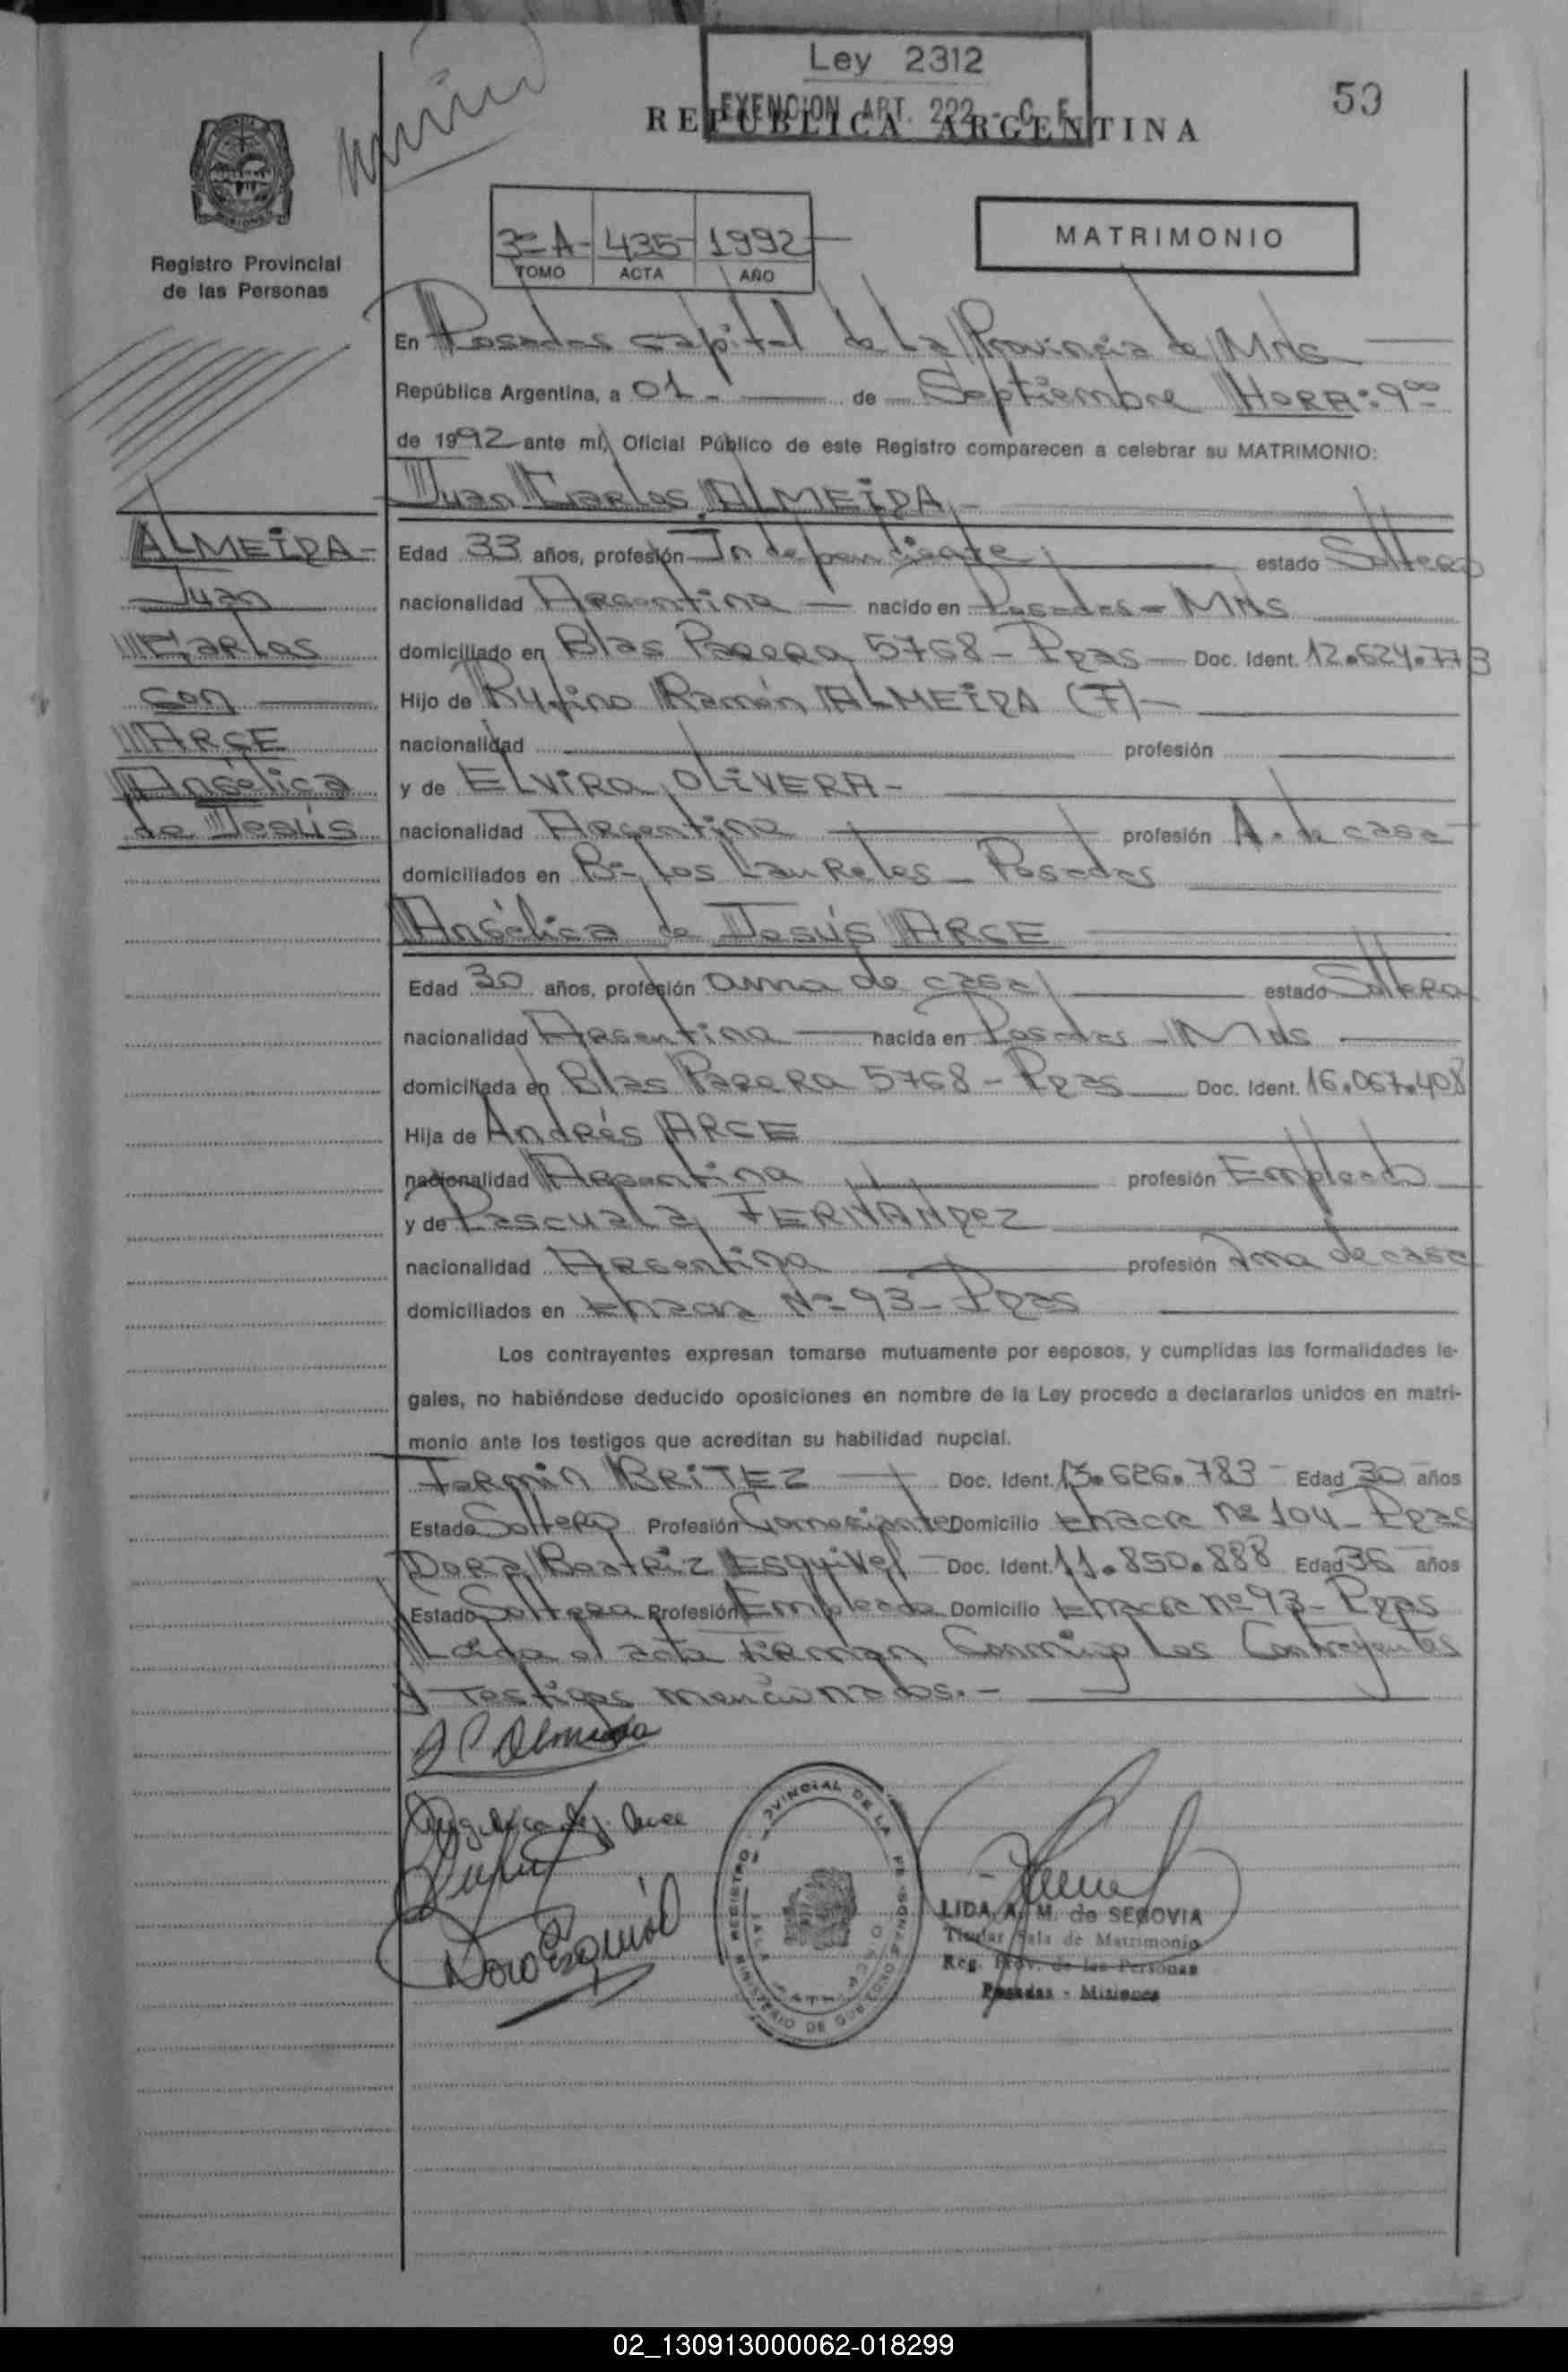 Ley 2312
EXENCION ART. 222 - C. F.
59
REPUBLICA ARGENTINA
Registro Provincial
de las Personas
3º A - 435 - 1992
TOMO ACTA AÑO
MATRIMONIO
En Posadas capital de la Provincia de Mnes
República Argentina, a 01.- de Septiembre HORA: 9:00
de 1992 ante mí, Oficial Público de este Registro comparecen a celebrar su MATRIMONIO:
Juan Carlos ALMEIDA.-
ALMEIDA-
Juan
Carlos
con
ARCE
Angélica
de Jesús
Edad 33 años, profesión Independiente estado Soltero
nacionalidad Argentina nacido en Posadas - Mnes
domiciliado en Blas Parera 5768 - Pdas Doc. Ident. 12.624.773
Hijo de Rufino Ramón ALMEIDA (F)-
nacionalidad profesión
y de ELVIRA OLIVERA-
nacionalidad Argentina profesión A. de casa
domiciliados en Bº los Laureles - Posadas
Angélica de Jesús ARCE
Edad 30 años, profesión ama de casa estado Soltera
nacionalidad Argentina nacida en Posadas - Mnes
domiciliada en Blas Parera 5768 - Pdas Doc. Ident. 16.067.408
Hija de Andrés ARCE
nacionalidad Argentina profesión Empleado
y de Pascuala FERNANDez
nacionalidad Argentina profesión Ama de casa
domiciliados en Chacra Nº 93 - Pdas
Los contrayentes expresan tomarse mutuamente por esposos, y cumplidas las formalidades le-
gales, no habiéndose deducido oposiciones en nombre de la Ley procedo a declararlos unidos en matri-
monio ante los testigos que acreditan su habilidad nupcial.
Fermin BRITEZ Doc. Ident. 13.626.783 Edad 30 años
Estado Soltero Profesión Comerciante Domicilio Chacra Nº 104 - Pdas
Dora Beatriz Esquivel Doc. Ident. 11.850.888 Edad 36 años
Estado Soltera Profesión Empleada Domicilio Chacra Nº 93 - Pdas
Leída el acta firman Conmigo los Contrayentes
y Testigos mencionados.-
J C Almeida
Angelica de J. Arce
Dora Esquivel
REGISTRO PROVINCIAL DE LAS PERSONAS
MINISTERIO DE GOBIERNO
LIDA A. M. de SEGOVIA
Titular Sala de Matrimonio
Reg. Prov. de las Personas
Posadas - Misiones
02_130913000062-018299